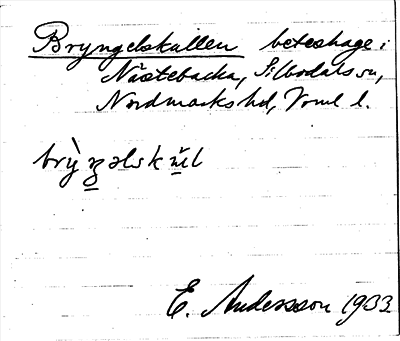 Bryngelskullen beteshage i
Nästebacka, Silbodals sn,
Nordmarks hd, Vrml l.
brỳŋəlskŭl
E. Andersson 1933.